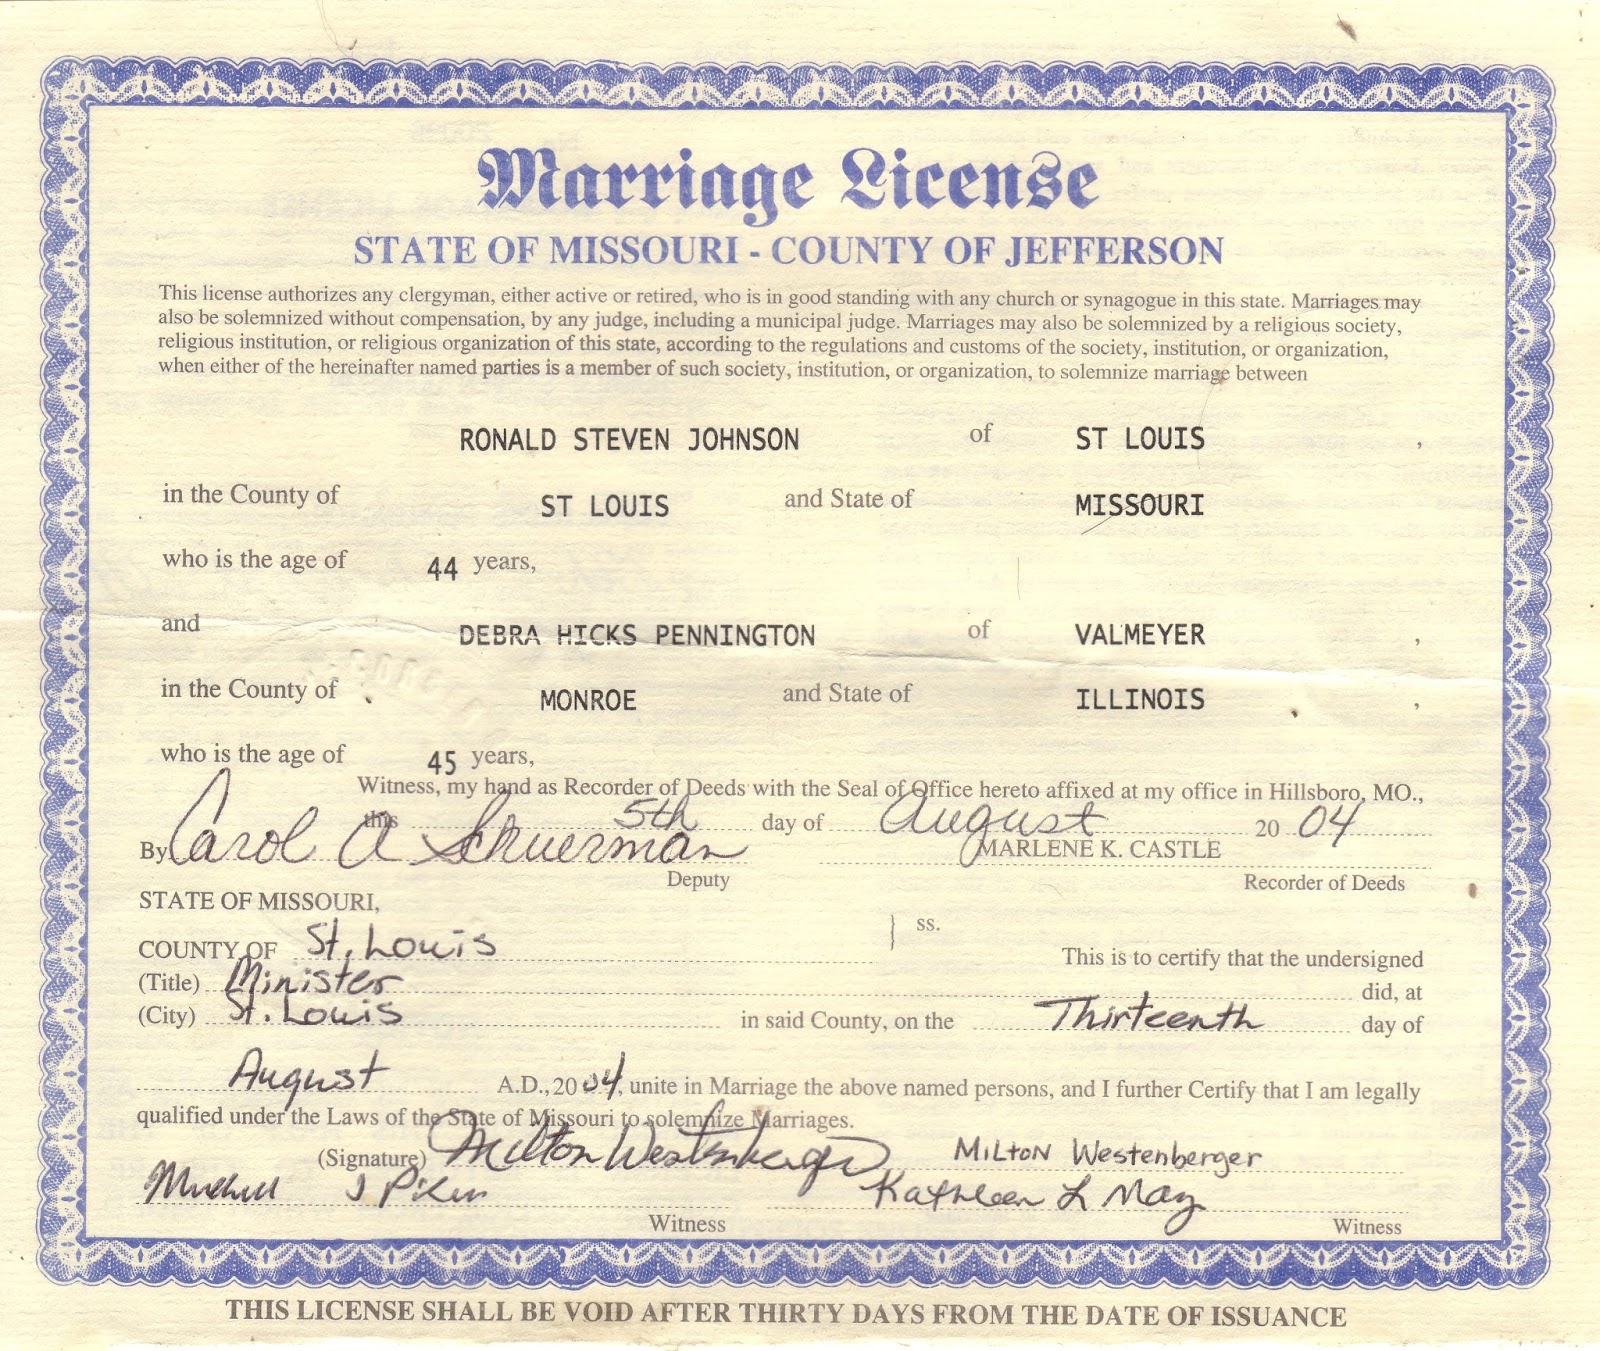 Marriage License
STATE OF MISSOURI - COUNTY OF JEFFERSON
This license authorizes any clergyman, either active or retired, who is in good standing with any church or synagogue in this state. Marriages may
also be solemnized without compensation, by any judge, including a municipal judge. Marriages may also be solemnized by a religious society,
religious institution, or religious organization of this state, according to the regulations and customs of the society, institution, or organization,
when either of the hereinafter named parties is a member of such society, institution, or organization, to solemnize marriage between
RONALD STEVEN JOHNSON of ST LOUIS ,
in the County of ST LOUIS and State of MISSOURI
who is the age of 44 years,
and DEBRA HICKS PENNINGTON of VALMEYER ,
in the County of MONROE and State of ILLINOIS ,
who is the age of 45 years,
Witness, my hand as Recorder of Deeds with the Seal of Office hereto affixed at my office in Hillsboro, MO.,
this 5th day of August 20 04
By Carol A Schuerman MARLENE K. CASTLE
Deputy Recorder of Deeds
STATE OF MISSOURI,
COUNTY OF St. Louis } ss.
This is to certify that the undersigned
(Title) Minister did, at
(City) St. Louis in said County, on the Thirteenth day of
August A.D., 20 04, unite in Marriage the above named persons, and I further Certify that I am legally
qualified under the Laws of the State of Missouri to solemnize Marriages.
(Signature) Milton Westenberger Milton Westenberger
J Kathleen L May
Witness Witness
THIS LICENSE SHALL BE VOID AFTER THIRTY DAYS FROM THE DATE OF ISSUANCE